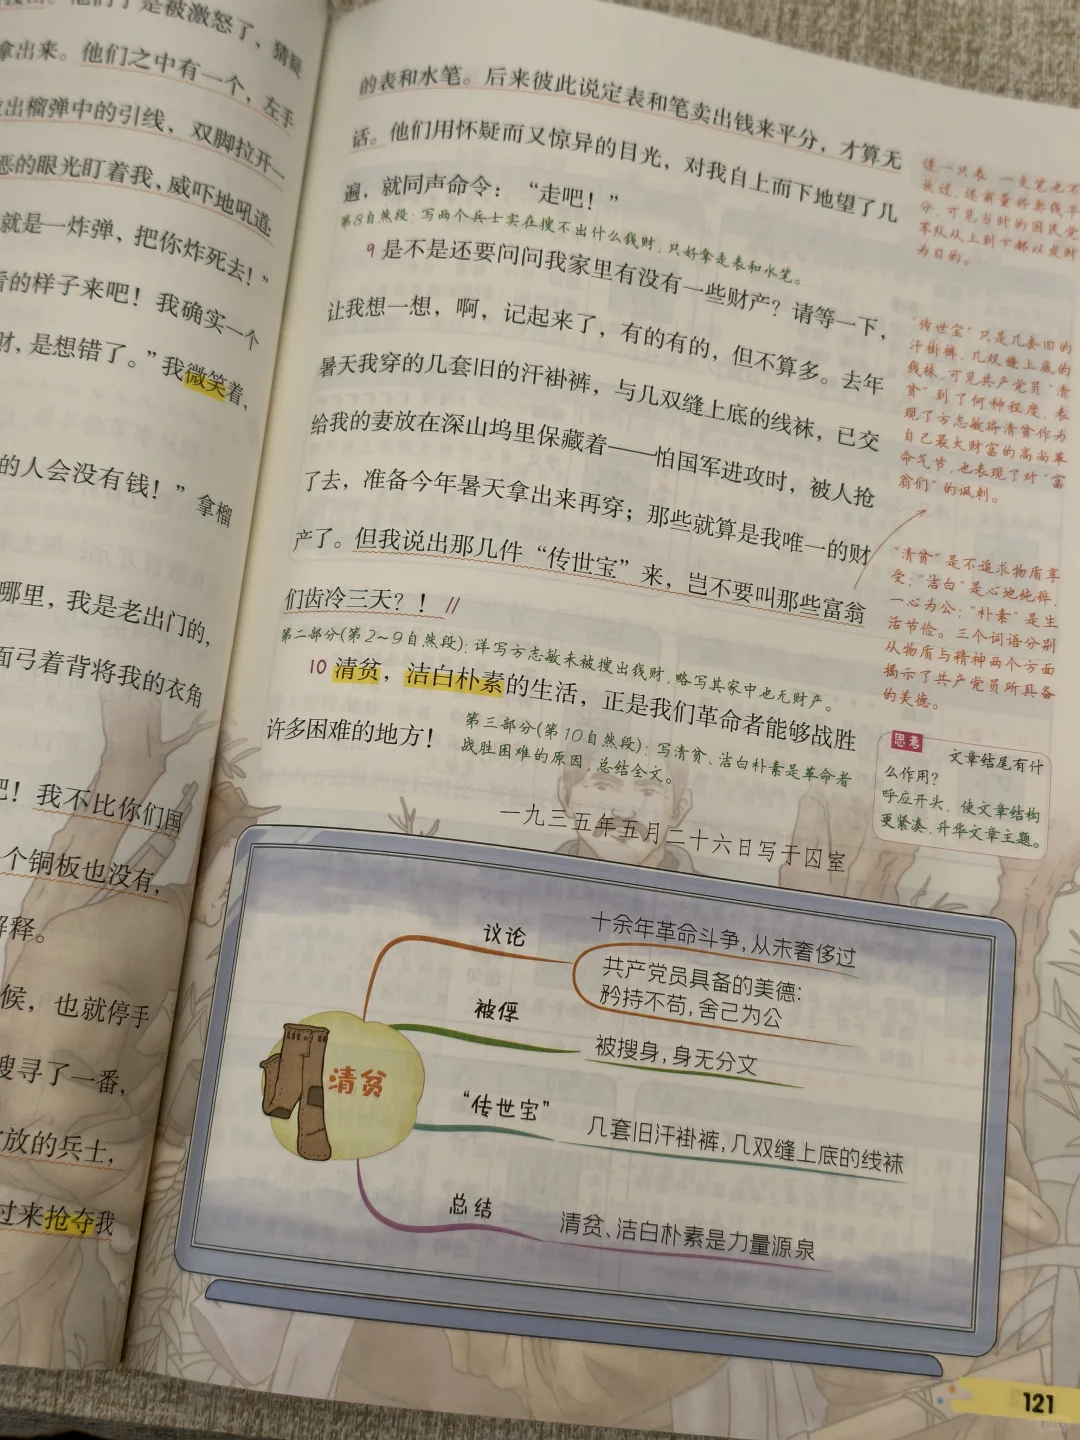 是被激怒了，猜疑
拿出来。他们之中有一个，左手
出榴弹中的引线，双脚拉开一
恶的眼光盯着我，威吓地吼道：
就是一炸弹，把你炸死去！”
的样子来吧！我确实一个
财，是想错了。”我微笑着，
的人会没有钱！”拿榴
哪里，我是老出门的，
面弓着背将我的衣角
吧！我不比你们国
个铜板也没有，
解释。
候，也就停手
搜寻了一番，
放的兵士，
过来抢夺我
的表和水笔。后来彼此说定表和笔卖出钱来平分，才算无
话。他们用怀疑而又惊异的目光，对我自上而下地望了几
遍，就同声命令：“走吧！”
第8自然段：写两个兵士实在搜不出什么钱财，只好拿走表和水笔。
9 是不是还要问问我家里有没有一些财产？请等一下，
让我想一想，啊，记起来了，有的有的，但不算多。去年
暑天我穿的几套旧的汗褂裤，与几双缝上底的线袜，已交
给我的妻放在深山坞里保藏着——怕国军进攻时，被人抢
了去，准备今年暑天拿出来再穿；那些就算是我唯一的财
产了。但我说出那几件“传世宝”来，岂不要叫那些富翁
们齿冷三天？！//
第二部分(第2～9自然段)：详写方志敏未被搜出钱财，略写其家中也无财产。
10 清贫，洁白朴素的生活，正是我们革命者能够战胜
许多困难的地方！
第三部分(第10自然段)：写清贫、洁白朴素是革命者
战胜困难的原因，总结全文。
一九三五年五月二十六日写于囚室
连一只表、一支笔也不
放过，还商量将卖钱平
分，可见当时的国民党
军队从上到下都以发财
为目的。
“传世宝”只是几套旧的
汗褂裤、几双缝上底的
线袜，可见共产党员“清
贫”到了何种程度，表
现了方志敏将清贫作为
自己最大财富的高尚革
命气节，也表现了对“富
翁们”的讽刺。
“清贫”是不追求物质享
受；“洁白”是心地纯粹，
一心为公；“朴素”是生
活节俭。三个词语分别
从物质与精神两个方面
揭示了共产党员所具备
的美德。
思考
文章结尾有什
么作用？
呼应开头，使文章结构
更紧凑，升华文章主题。
清贫
议论
十余年革命斗争，从未奢侈过
共产党员具备的美德：
矜持不苟，舍己为公
被俘
被搜身，身无分文
“传世宝”
几套旧汗褂裤，几双缝上底的线袜
总结
清贫、洁白朴素是力量源泉
121